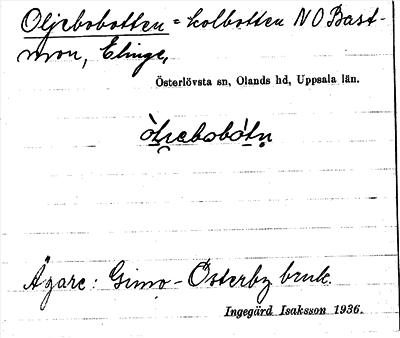 Oljebobotten = kolbotten N O Bast-
mon, Elinge,
Österlövsta sn, Olands hd, Uppsala län.
Ägare: Gimo-Österby bruk.
Ingegärd Isaksson 1936.